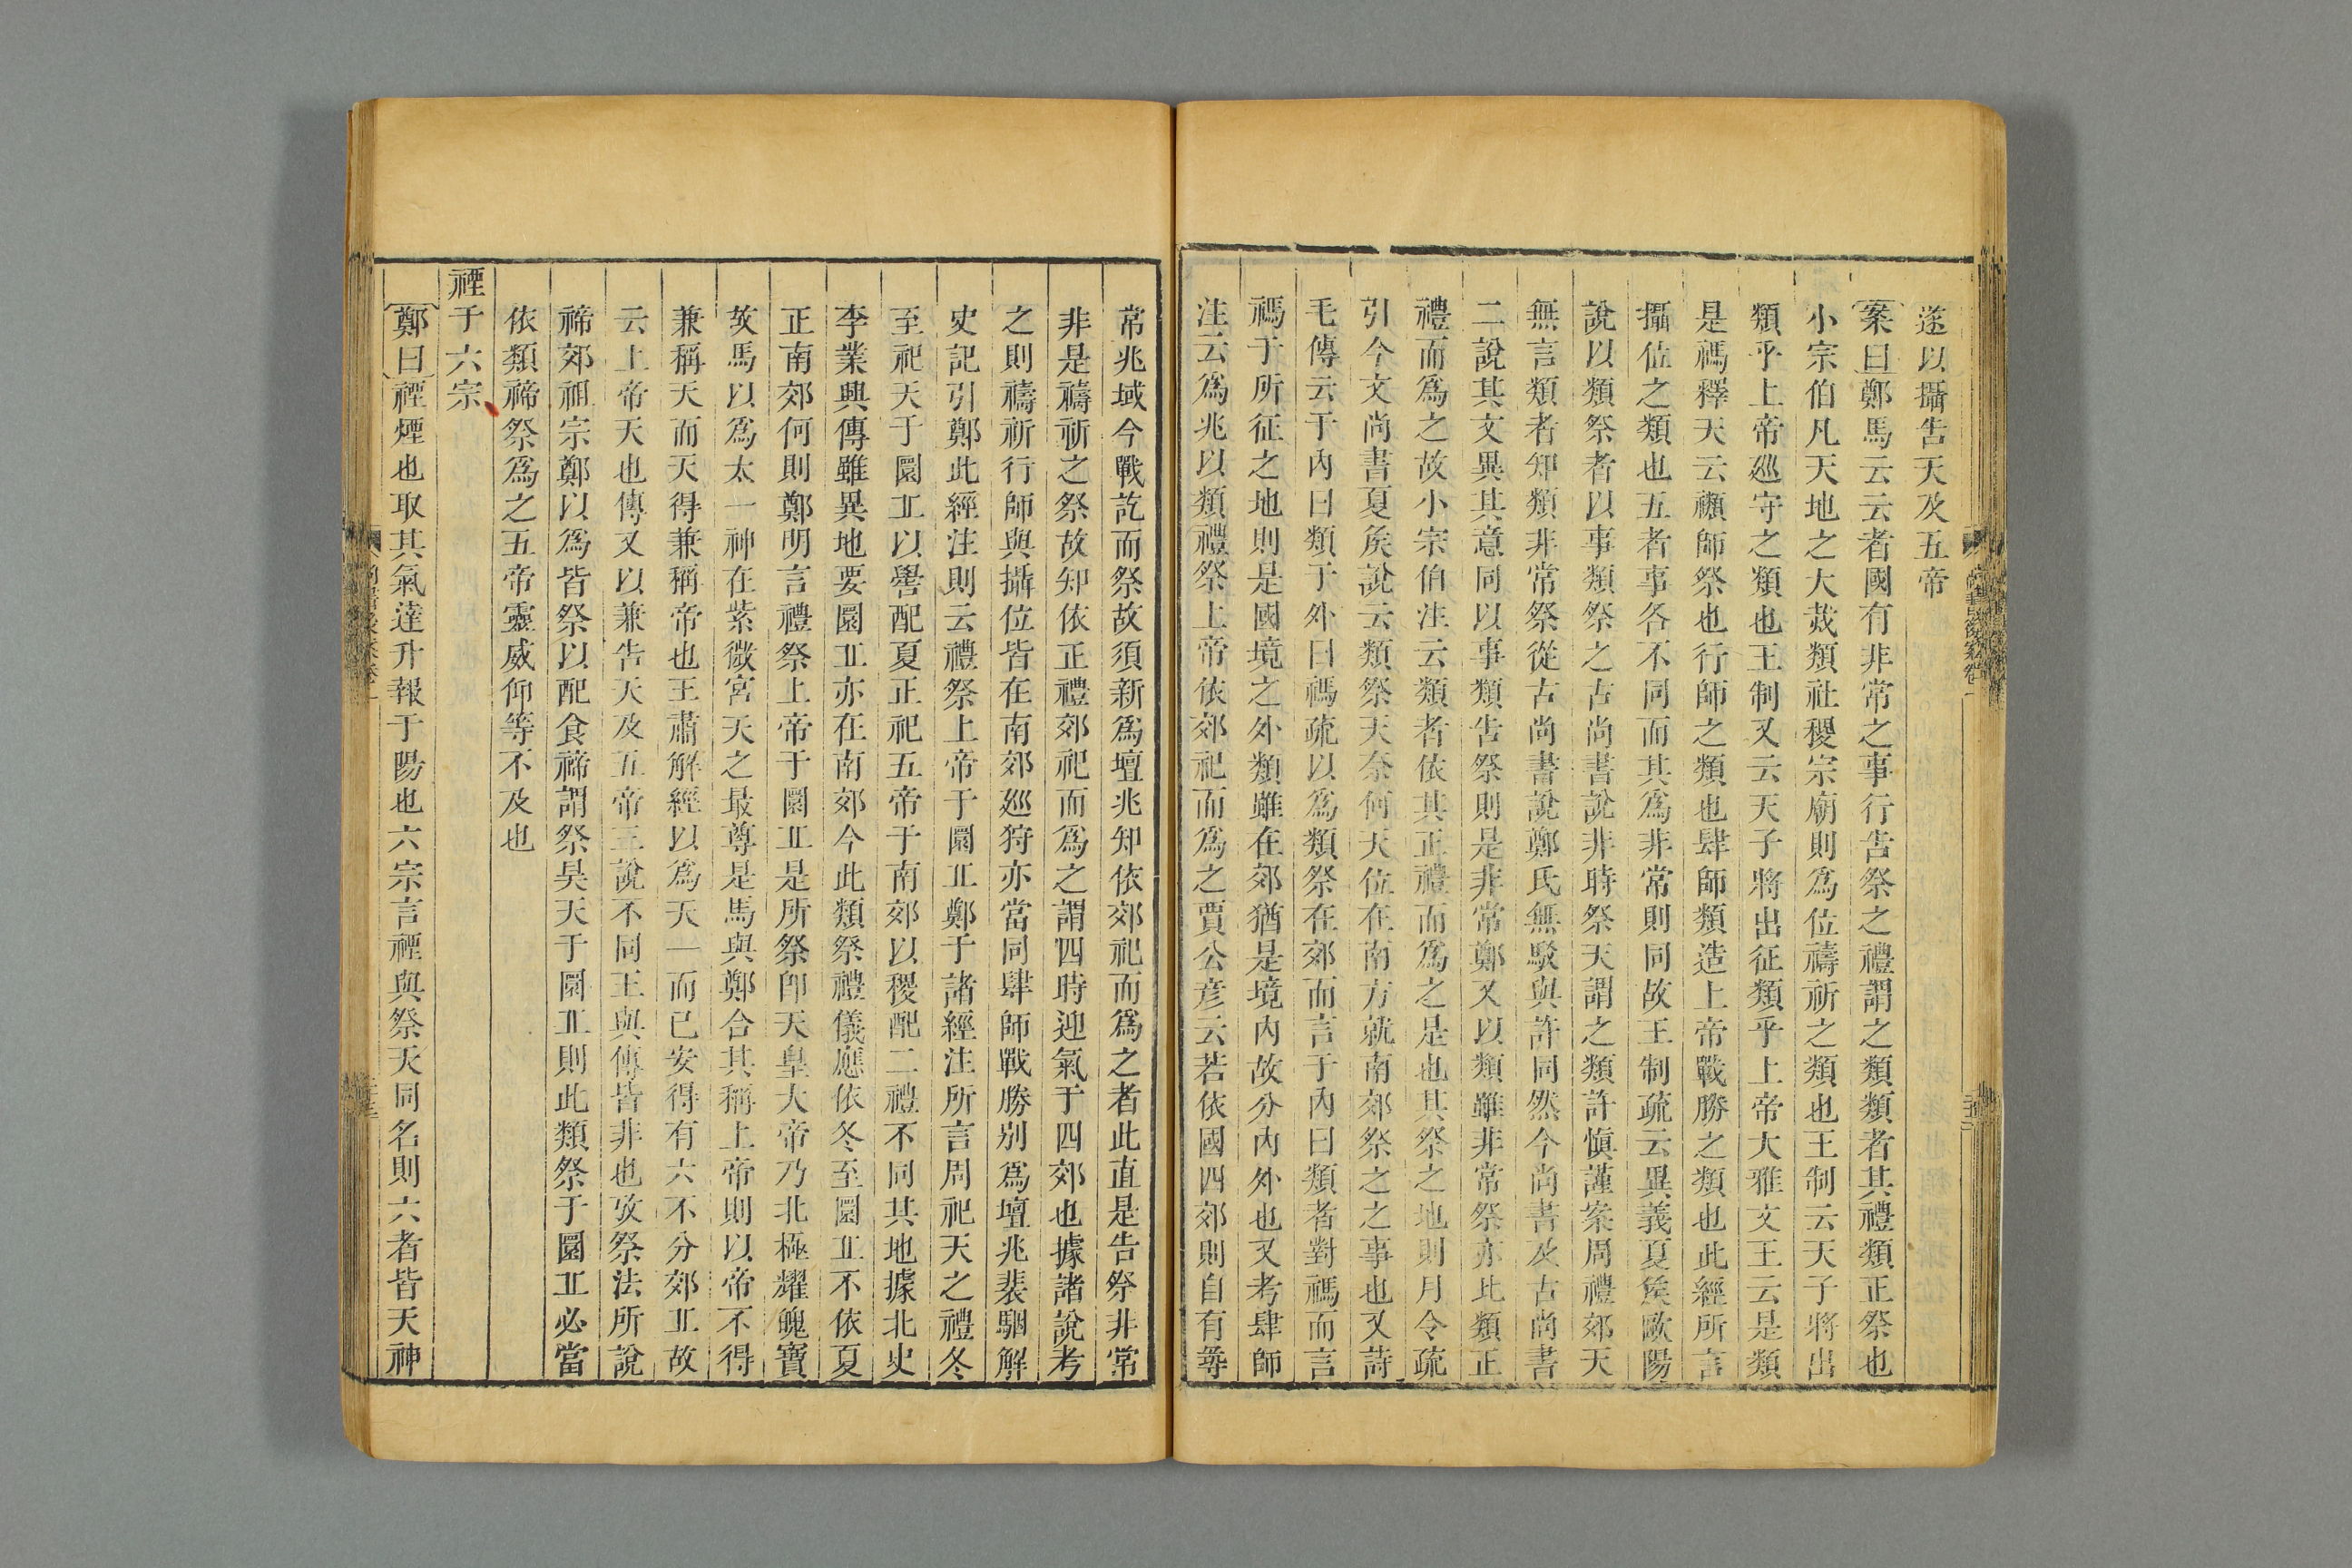 遂以攝告天及五帝
案曰鄭馬云云者國有非常之事行告祭之禮謂之類類者其禮類正祭也
小宗伯凡天地之大烖類社稷宗廟則爲位禱祈之類也王制云天子將出
類乎上帝廵守之類也王制又云天子將出征類乎上帝大雅文王云是類
是禡釋天云禷師祭也行師之類也肆師類造上帝戰勝之類也此經所言
攝位之類也五者事各不同而其爲非常則同故王制疏云異義夏矦歐陽
說以類祭者以事類祭之古尚書說非時祭天謂之類許愼謹案周禮郊天
無言類者知類非常祭從古尚書說鄭氏無駁與許同然今尚書及古尚書
二說其文異其意同以事類告祭則是非常鄭又以類雖非常祭亦比類正
禮而爲之故小宗伯注云類者依其正禮而爲之是也其祭之地則月令疏
引今文尚書夏矦說云類祭天奈何天位在南方就南郊祭之之事也又詩
毛傳云于內曰類于外曰禡疏以爲類祭在郊而言于內曰類者對禡而言
禡于所征之地則是國境之外類雖在郊猶是境內故分內外也又考肆師
注云爲兆以類禮祭上帝依郊祀而爲之賈公彥云若依國四郊則自有尋
常兆域今戰訖而祭故須新爲壇兆知依郊祀而爲之者此直是告祭非常
非是禱祈之祭故知依正禮郊祀而爲之謂四時迎氣于四郊也據諸說考
之則禱祈行師與攝位皆在南郊廵狩亦當同肆師戰勝别爲壇兆裴駰解
史記引鄭此經注則云禮祭上帝于圜丠鄭于諸經注所言周祀天之禮冬
至祀天于圜丠以嚳配夏正祀五帝于南郊以稷配二禮不同其地據北史
李業興傳雖異地要圜丠亦在南郊今此類祭禮儀應依冬至圜丠不依夏
正南郊何則鄭明言禮祭上帝于圜丠是所祭卽天皇大帝乃北極耀魄寶
攷馬以爲太一神在紫微宮天之最尊是馬與鄭合其稱上帝則以帝不得
兼稱天而天得兼稱帝也王肅解經以爲天一而已安得有六不分郊丠故
云上帝天也傳又以兼告天及五帝三說不同王與傳皆非也攷祭法所說
禘郊祖宗鄭以爲皆祭以配食禘謂祭昊天于圜丠則此類祭于圜丠必當
依類禘祭爲之五帝靈威仰等不及也
禋于六宗
鄭曰禋煙也取其氣達升報于陽也六宗言禋與祭天同名則六者皆天神